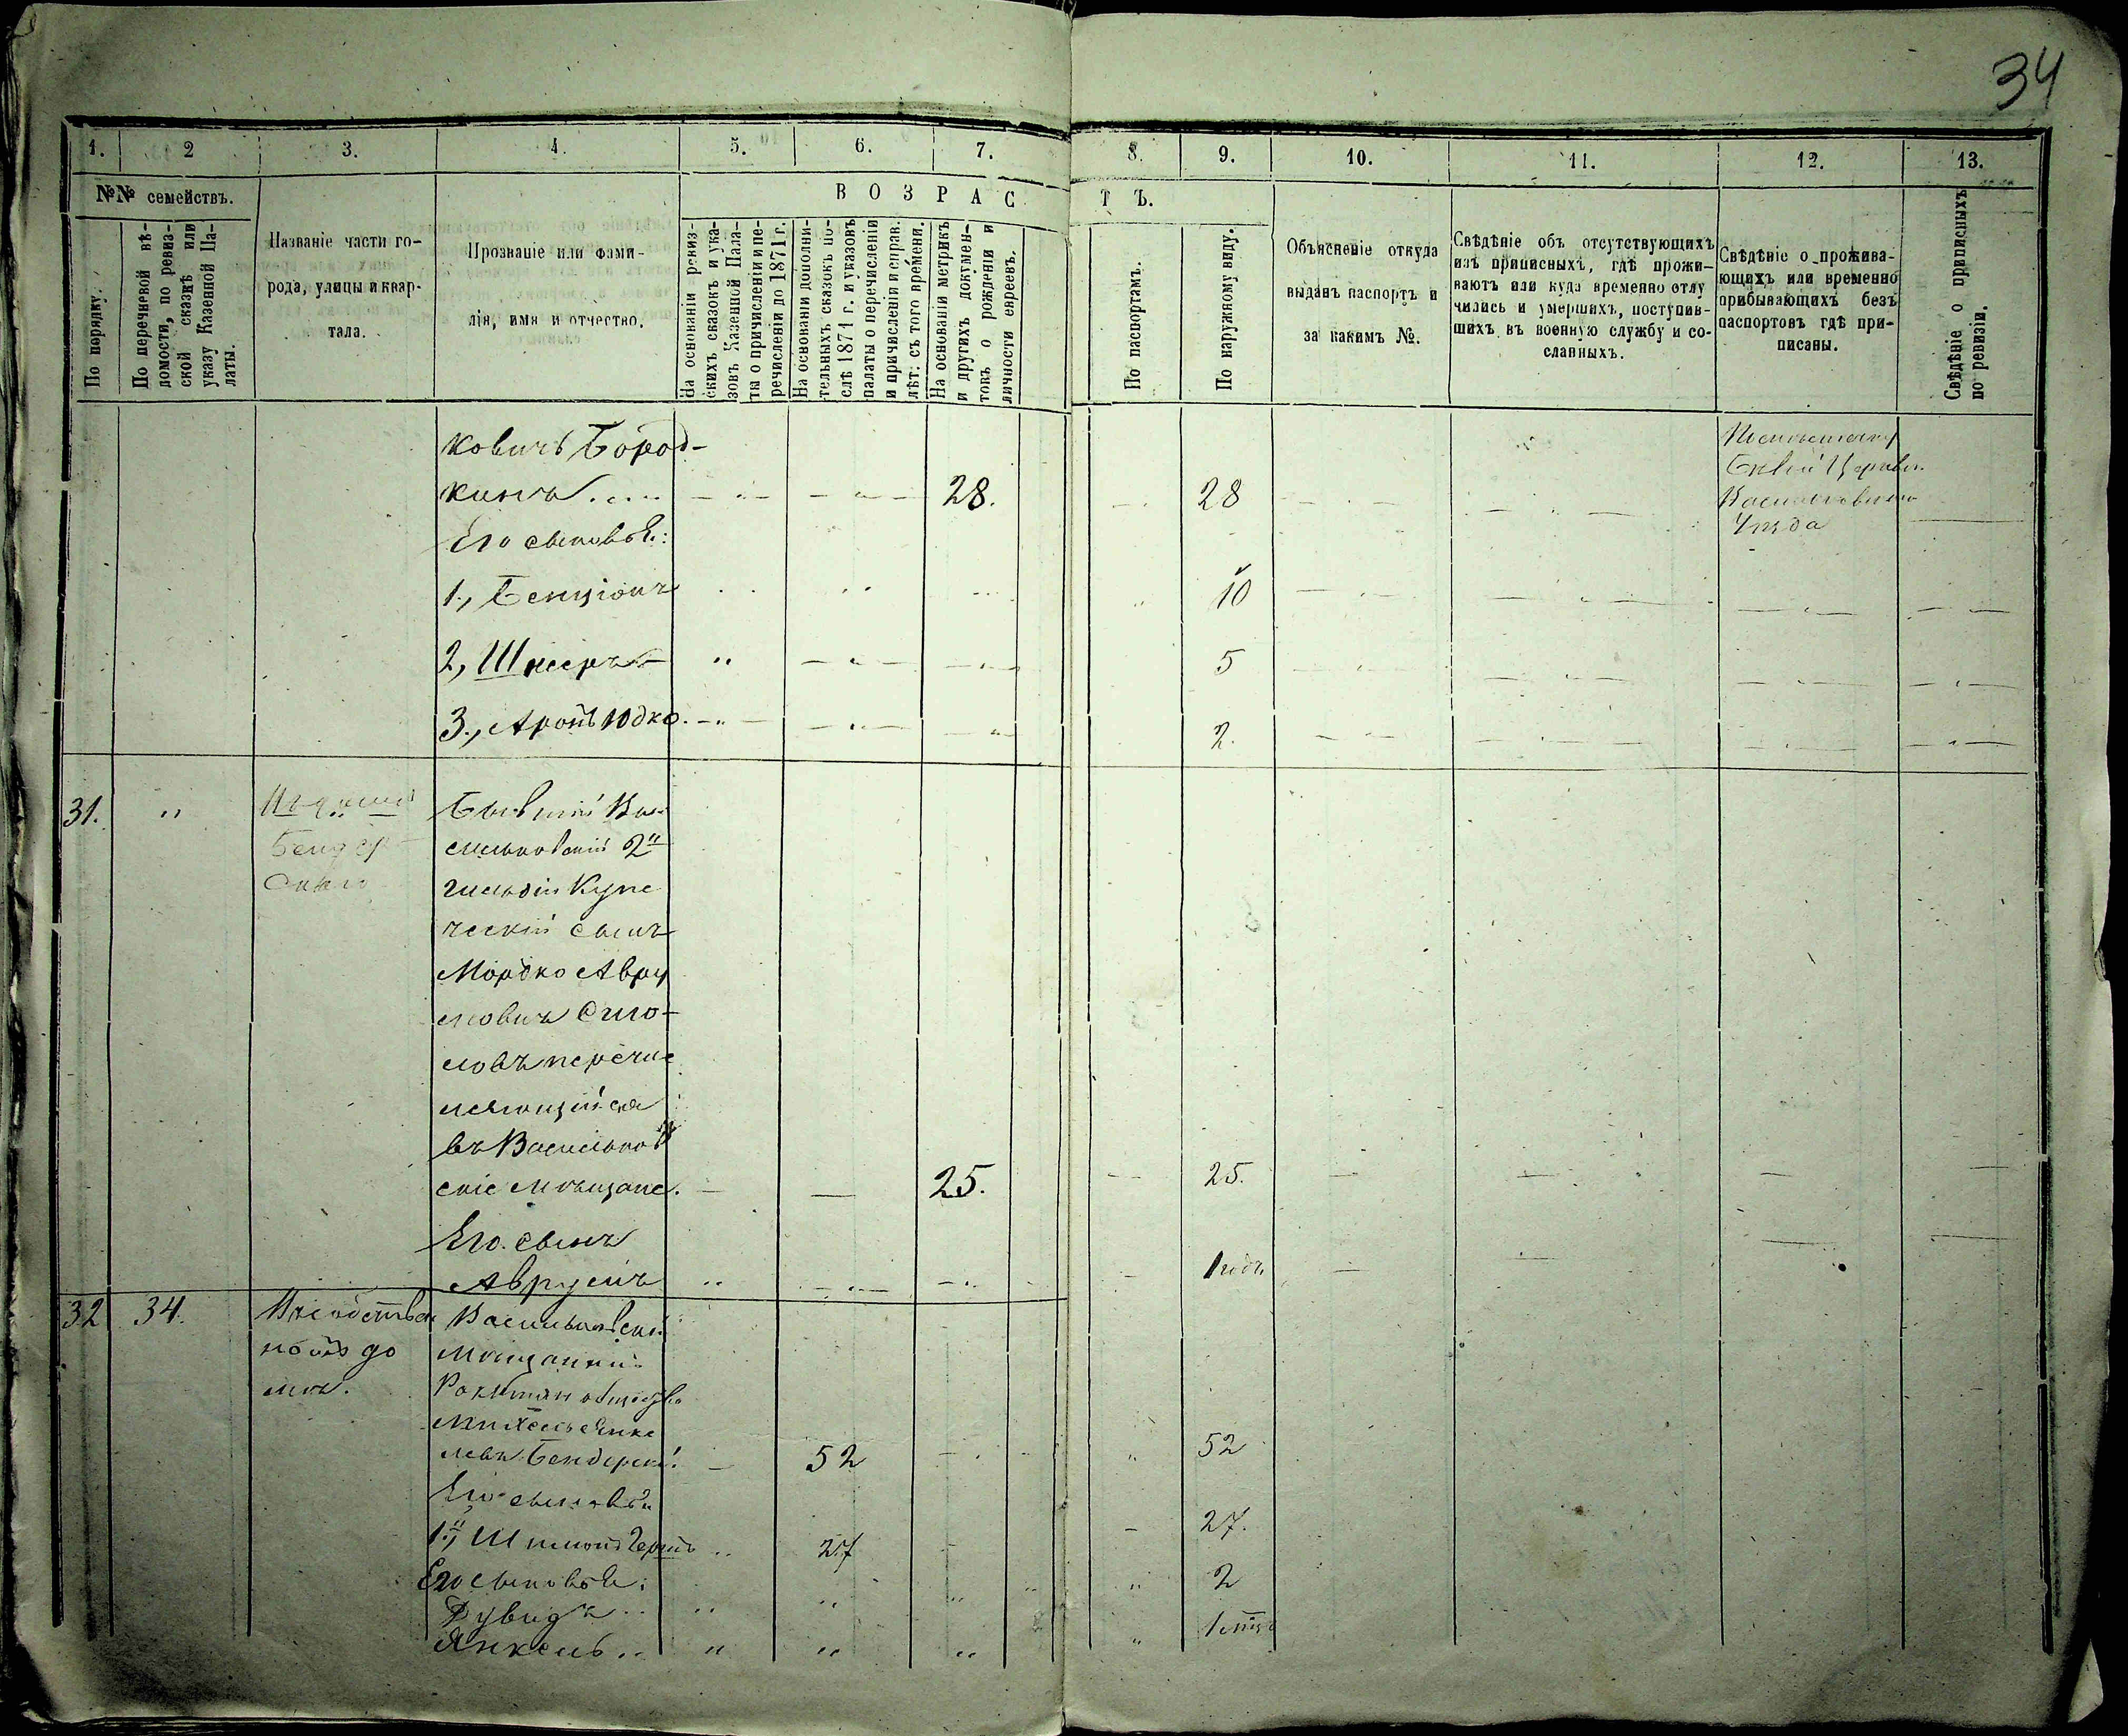 34
1. 2 3. 4. 5. 6. 7. 8. 9. 10. 11. 12. 13.
№№ семействъ.
По порядку.
По перечневой вѣ-
домости, по ревиз-
ской сказкѣ или
указу Казенной Па-
латы.
Названіе части го-
рода, улицы и квар-
тала.
Прозваніе или фами-
лія, имя и отчество.
ВОЗРАС
ТЪ.
На основаніи ревиз-
скихъ сказокъ и ука-
зовъ Казенной Пала-
ты о причисленіи и пе-
речисленіи до 1871 г.
На основаніи дополни-
тельныхъ сказокъ по-
слѣ 1871 г. и указовъ
палаты о перечисленіи
и причисленіи и справ.
лѣт: съ того времени.
На основаніи метрикъ
и другихъ докумен-
товъ о рожденіи и
личности евреевъ.
По паспортамъ.
По наружному виду.
Объясненіе откуда
выданъ паспортъ и
за какимъ №.
Свѣдѣніе объ отсутствующихъ
изъ приписныхъ, гдѣ прожи-
ваютъ или куда временно отлу
чились и умершихъ, поступив-
шихъ въ военную службу и со-
сланныхъ.
Свѣдѣніе о прожива-
ющихъ или временно
прибывающихъ безъ
паспортовъ гдѣ при-
писаны.
Свѣдѣніе о приписныхъ
по ревизіи.
ковичъ Бород-
кинъ.... 28. 28
Уѣзда
Его сыновья:
1., Бенціонъ 10
2, Шнееръ 5
3., Аронъ Юдко. 2.
31. Бывшій Ва-
сильковскій 2й
гильдіи Купе
ческій сынъ
Мордко Авру
мовичъ Сило-
мовъ перечис
ляющійся
въ Васильков
скіе мѣщане. 25. 25.
Его сынъ
Аврумъ 1 годъ
32 34. Васильковскій
ной до
мъ.
мѣщанинъ
Рокитян общества
Михель Янке
левъ Бендерскій 52 52
Его сыновья
1., Шимонъ Гершъ 27 27.
Его сыновья: 2
Дувидъ
Янкель 1